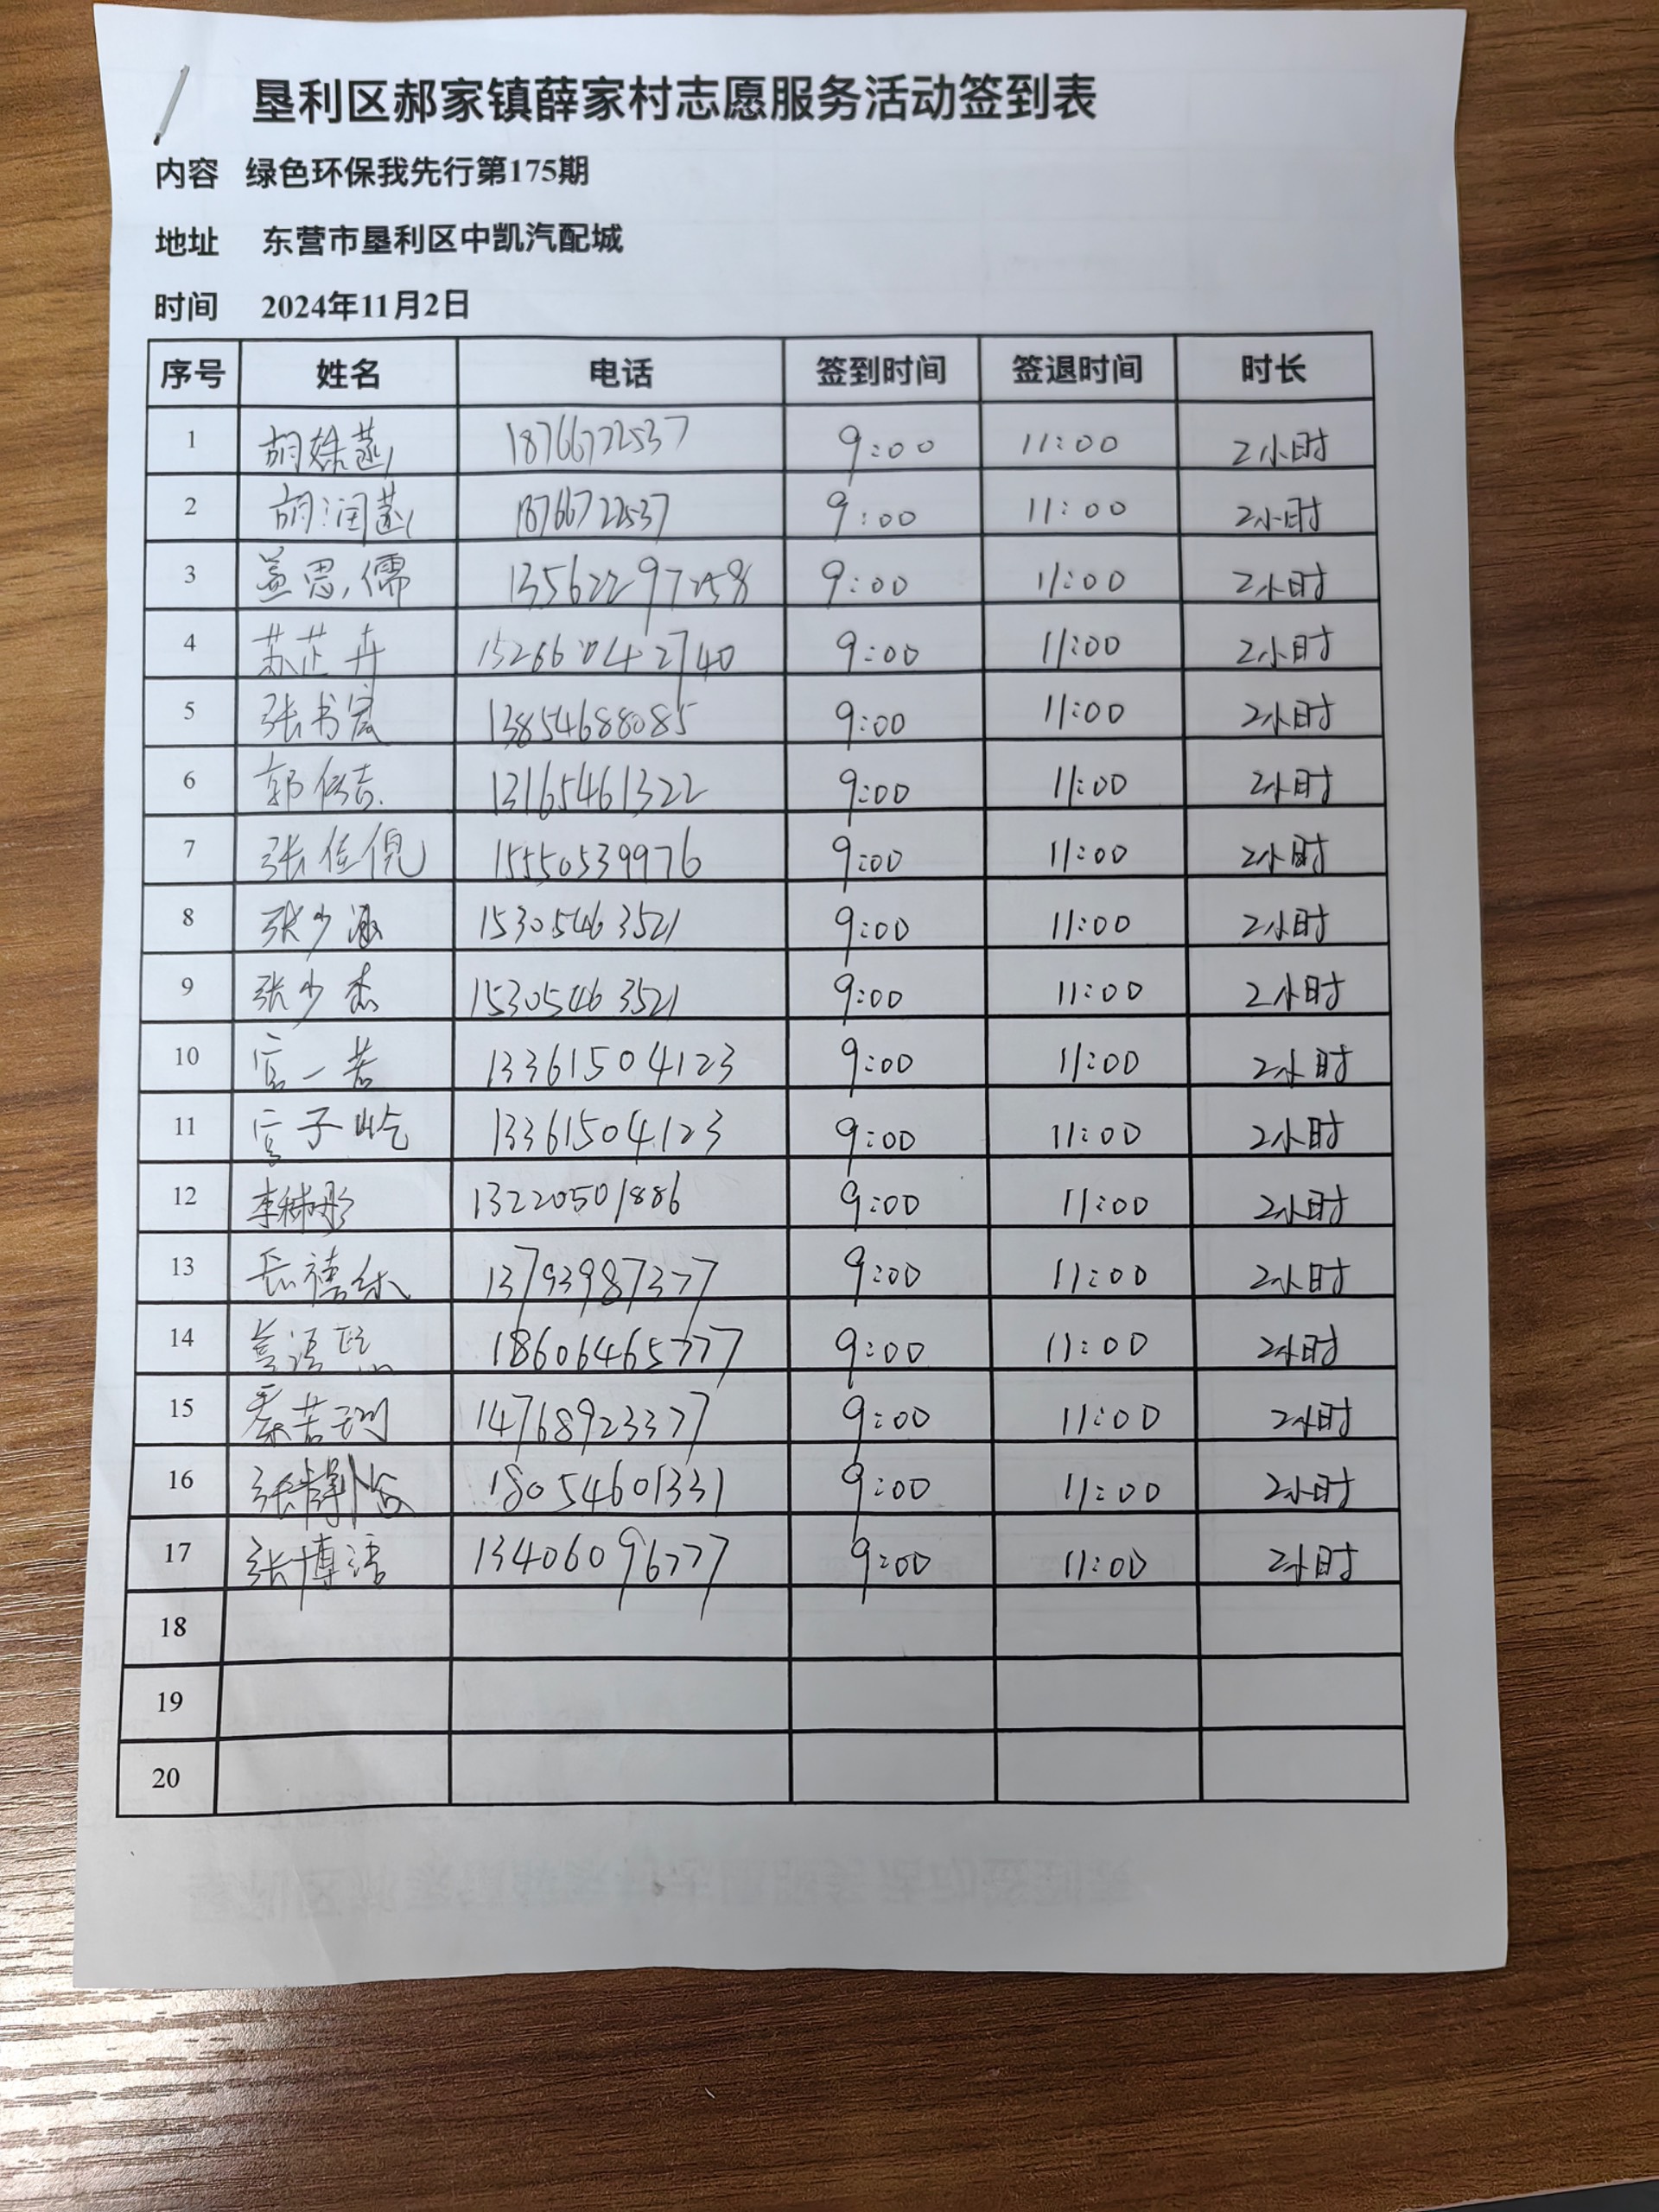 垦利区郝家镇薛家村志愿服务活动签到表
内容 绿色环保我先行第175期
地址 东营市垦利区中凯汽配城
时间 2024年11月2日
序号 姓名 电话 签到时间 签退时间 时长
1 胡姝菡 18766722537 9:00 11:00 2小时
2 胡润菡 18766722537 9:00 11:00 2小时
3 盖思儒 13562297258 9:00 11:00 2小时
4 苏芷卉 15266042740 9:00 11:00 2小时
5 张书宸 13854688085 9:00 11:00 2小时
6 郭倍吉 13165461322 9:00 11:00 2小时
7 张佳倪 15550539976 9:00 11:00 2小时
8 张少涵 15305463521 9:00 11:00 2小时
9 张少杰 15305463521 9:00 11:00 2小时
10 官一诺 13361504123 9:00 11:00 2小时
11 官子屹 13361504123 9:00 11:00 2小时
12 李 彤 13220501886 9:00 11:00 2小时
13 禧 13793987377 9:00 11:00 2小时
14 语熙 18606465777 9:00 11:00 2小时
15 秦若玥 14768923377 9:00 11:00 2小时
16 张 18054601331 9:00 11:00 2小时
17 张博涵 13406096777 9:00 11:00 2小时
18
19
20